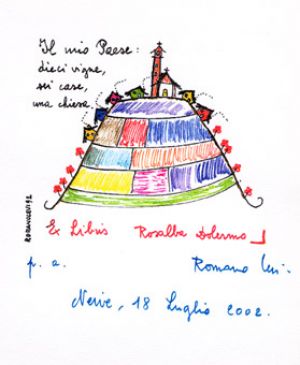 Il mio Paese:
dieci vigne,
sei case,
una chiesa.
Ex Libris Rosalba Dolermo
p. a. Romano
Neive, 18 Luglio 2002.